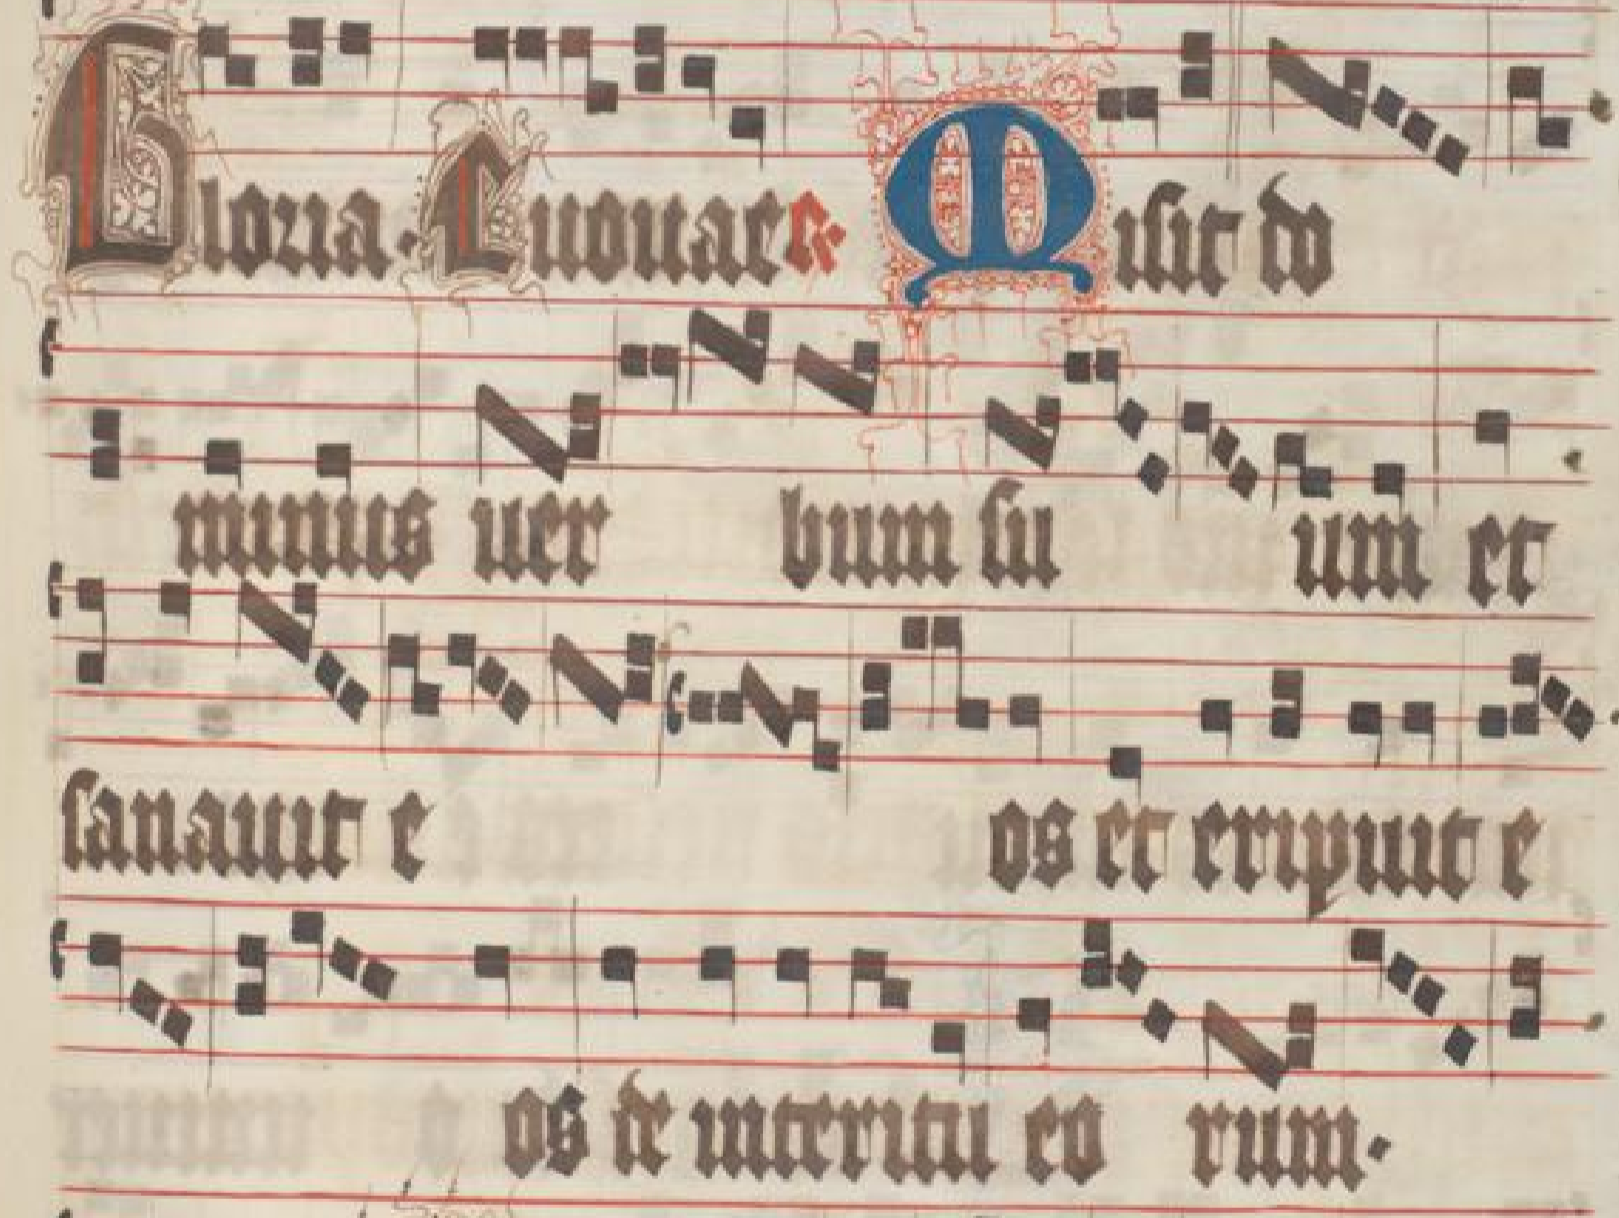 Gloria. Euouae R. Misit do
minus uer bum su um et
sanauit e os et eripuit e
os de interitu eo rum.